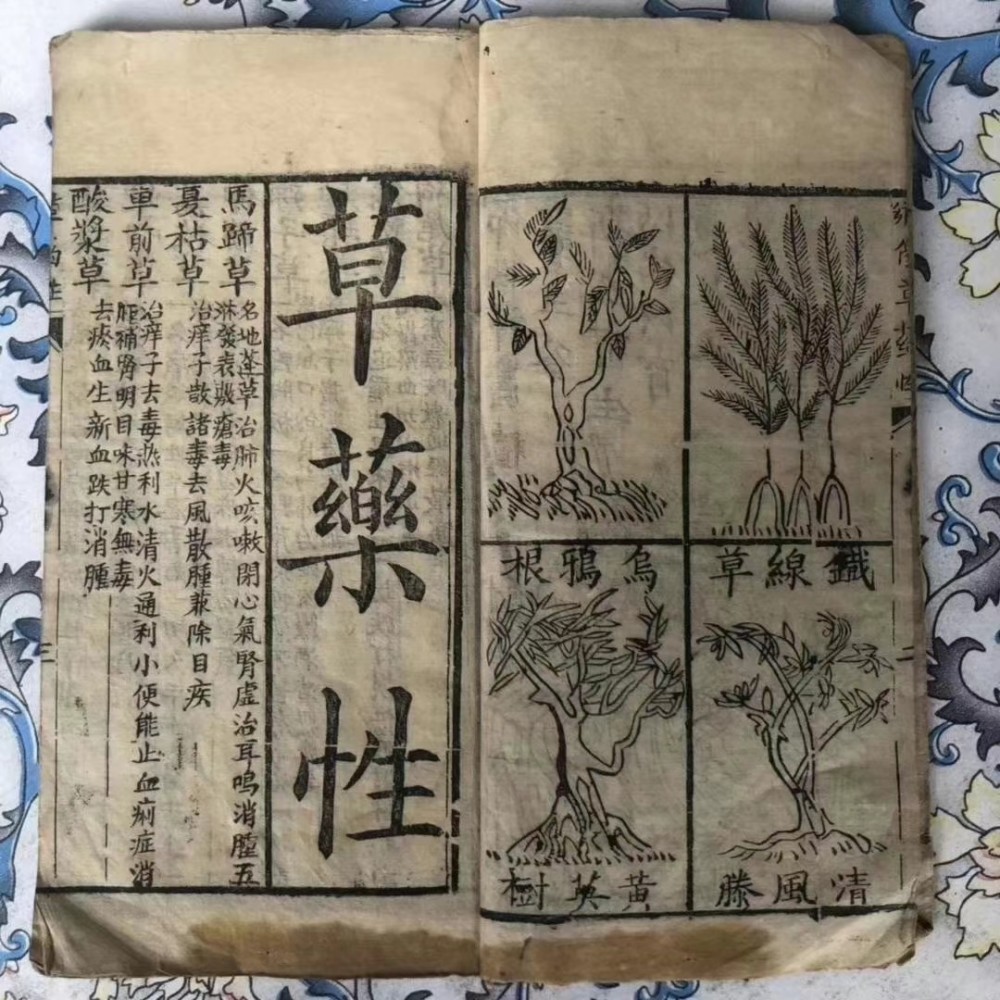 鐵線草
烏鴉根
清風滕
黃英樹
二
草藥性
馬蹄草
名地蓮草治肺火咳嗽閉心氣腎虛治耳鳴消腫五
淋發表散瘡毒
夏枯草
治痒子散諸毒去風散腫兼除目疾
車前草
治痒子去毒熱利水清火通利小便能止血痢症消
腫補腎明目味甘寒無毒
酸漿草
去瘀血生新血跌打消腫
三